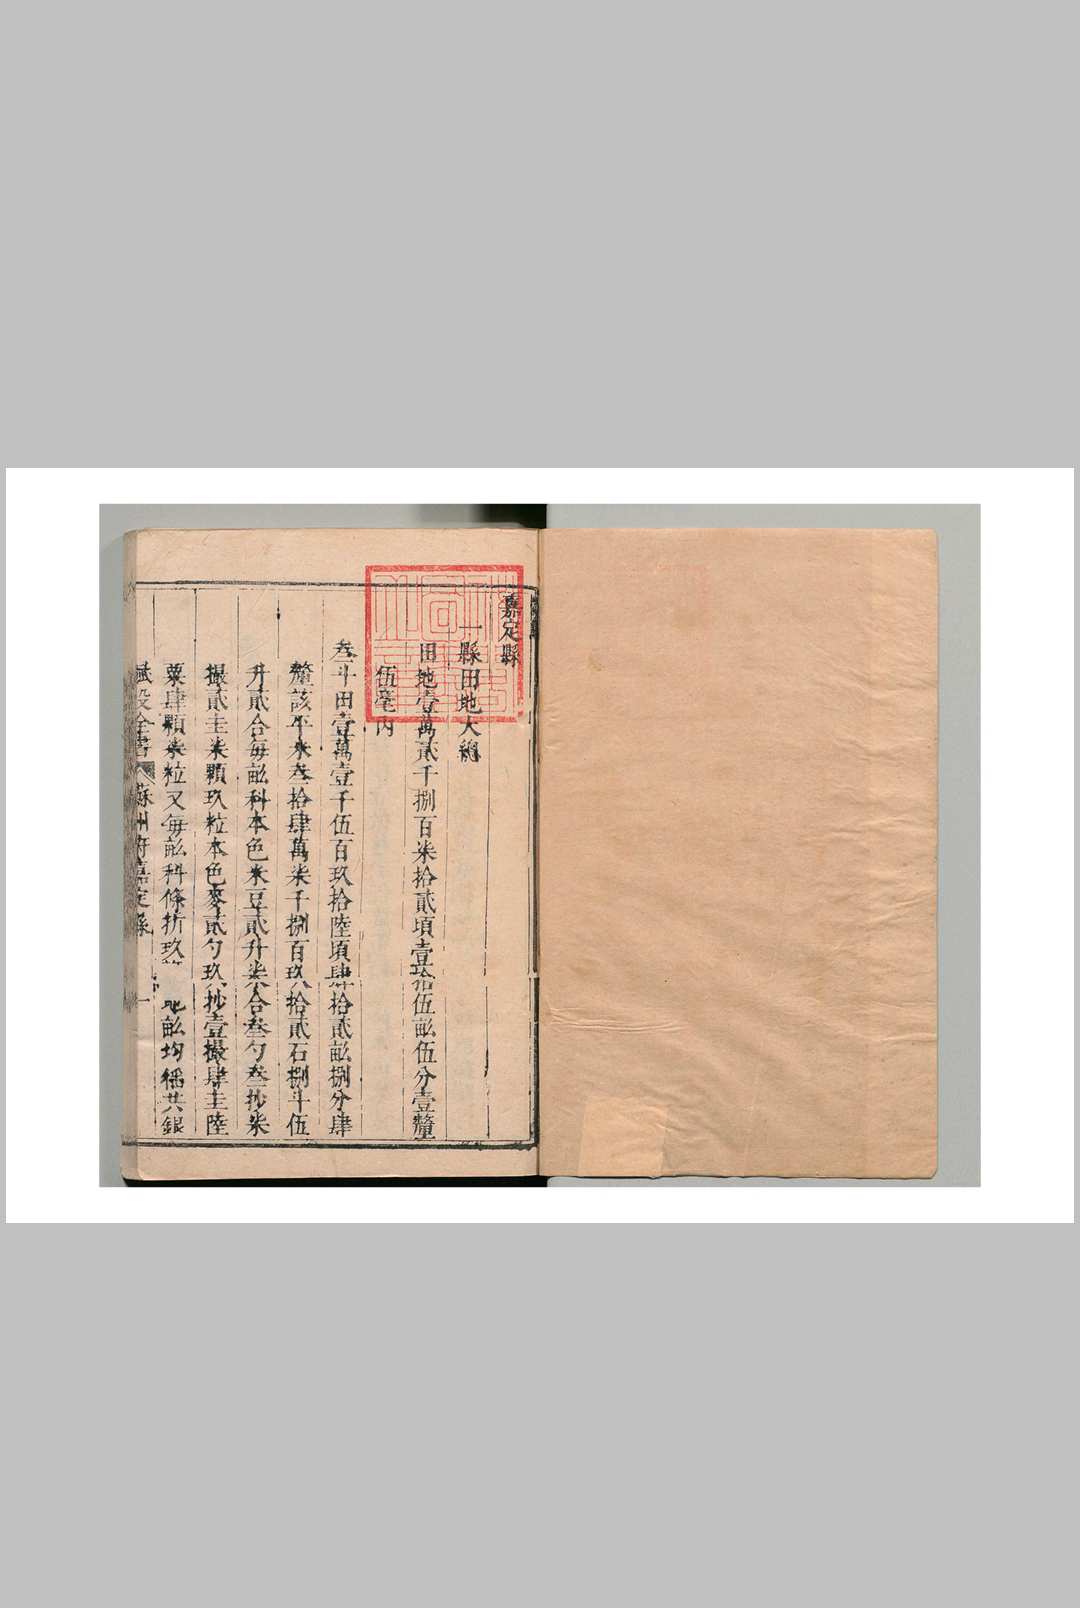 嘉定縣
一縣田地大總
田地壹萬貳千捌百柒拾貳頃壹拾伍畝伍分壹釐
伍毫內
叁斗田壹萬壹千伍百玖拾陸頃肆拾貳畝捌分肆
釐該平米叁拾肆萬柒千捌百玖拾貳石捌斗伍
升貳合每畝科本色米豆貳升柒合叁勺叁抄柒
撮貳圭柒顆玖粒本色麥貳勺玖抄壹撮肆圭陸
粟肆顆柒粒又每畝科條折玖 地畝均徭共銀
賦役全書 蘇州府嘉定縣 一